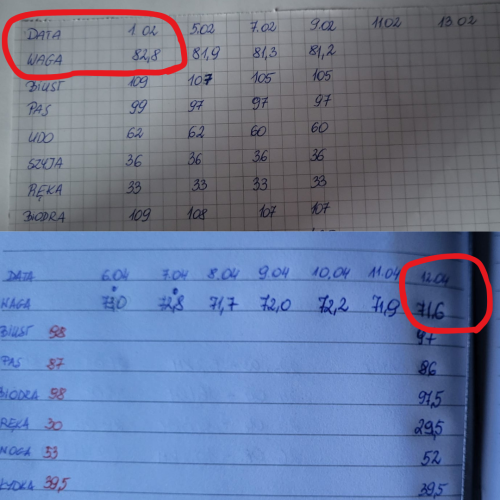 DATA 1.02 5.02 7.02 9.02 11.02 13.02
WAGA 82,8 81,9 81,3 81,2
BIUST 109 107 105 105
PAS 99 97 97 97
UDO 62 62 60 60
SZYJA 36 36 36 36
RĘKA 33 33 33 33
BIODRA 109 108 107 107
DATA 6.04 7.04 8.04 9.04 10.04 11.04 12.04
WAGA 73,0 72,8 71,7 72,0 72,2 71,9 71,6
BIUST 98 97
PAS 87 86
BIODRA 98 97,5
RĘKA 30 29,5
NOGA 53 52
ŁYDKA 39,5 39,5